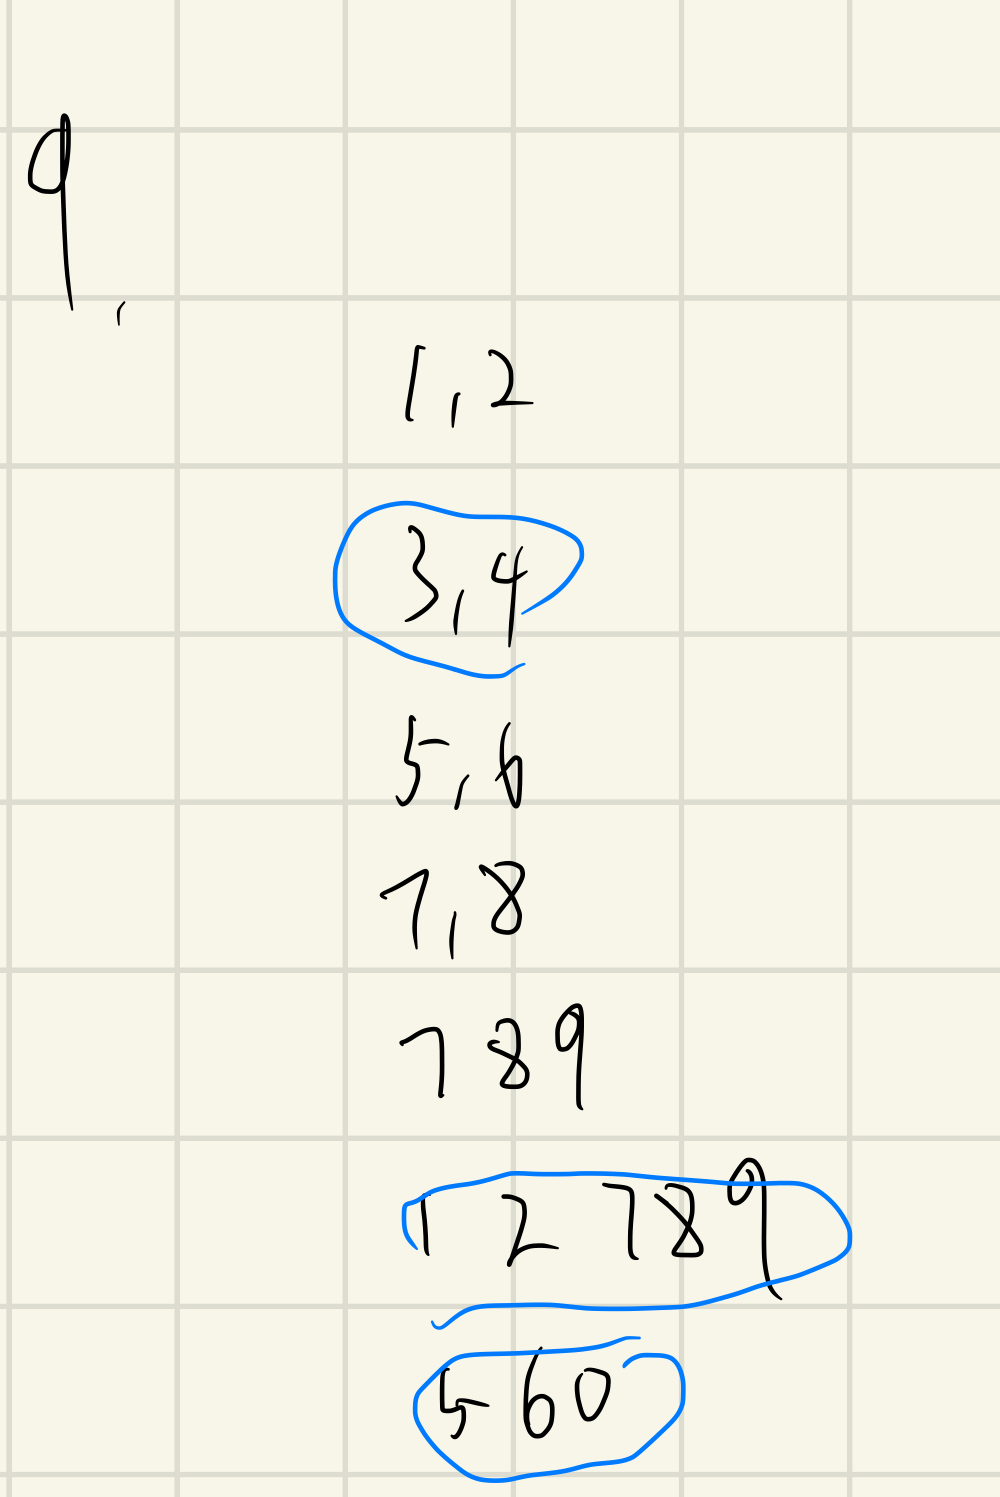 9,
1,2
3,4
5,6
7,8
7 8 9
1 2 7 8 9
5 6 0